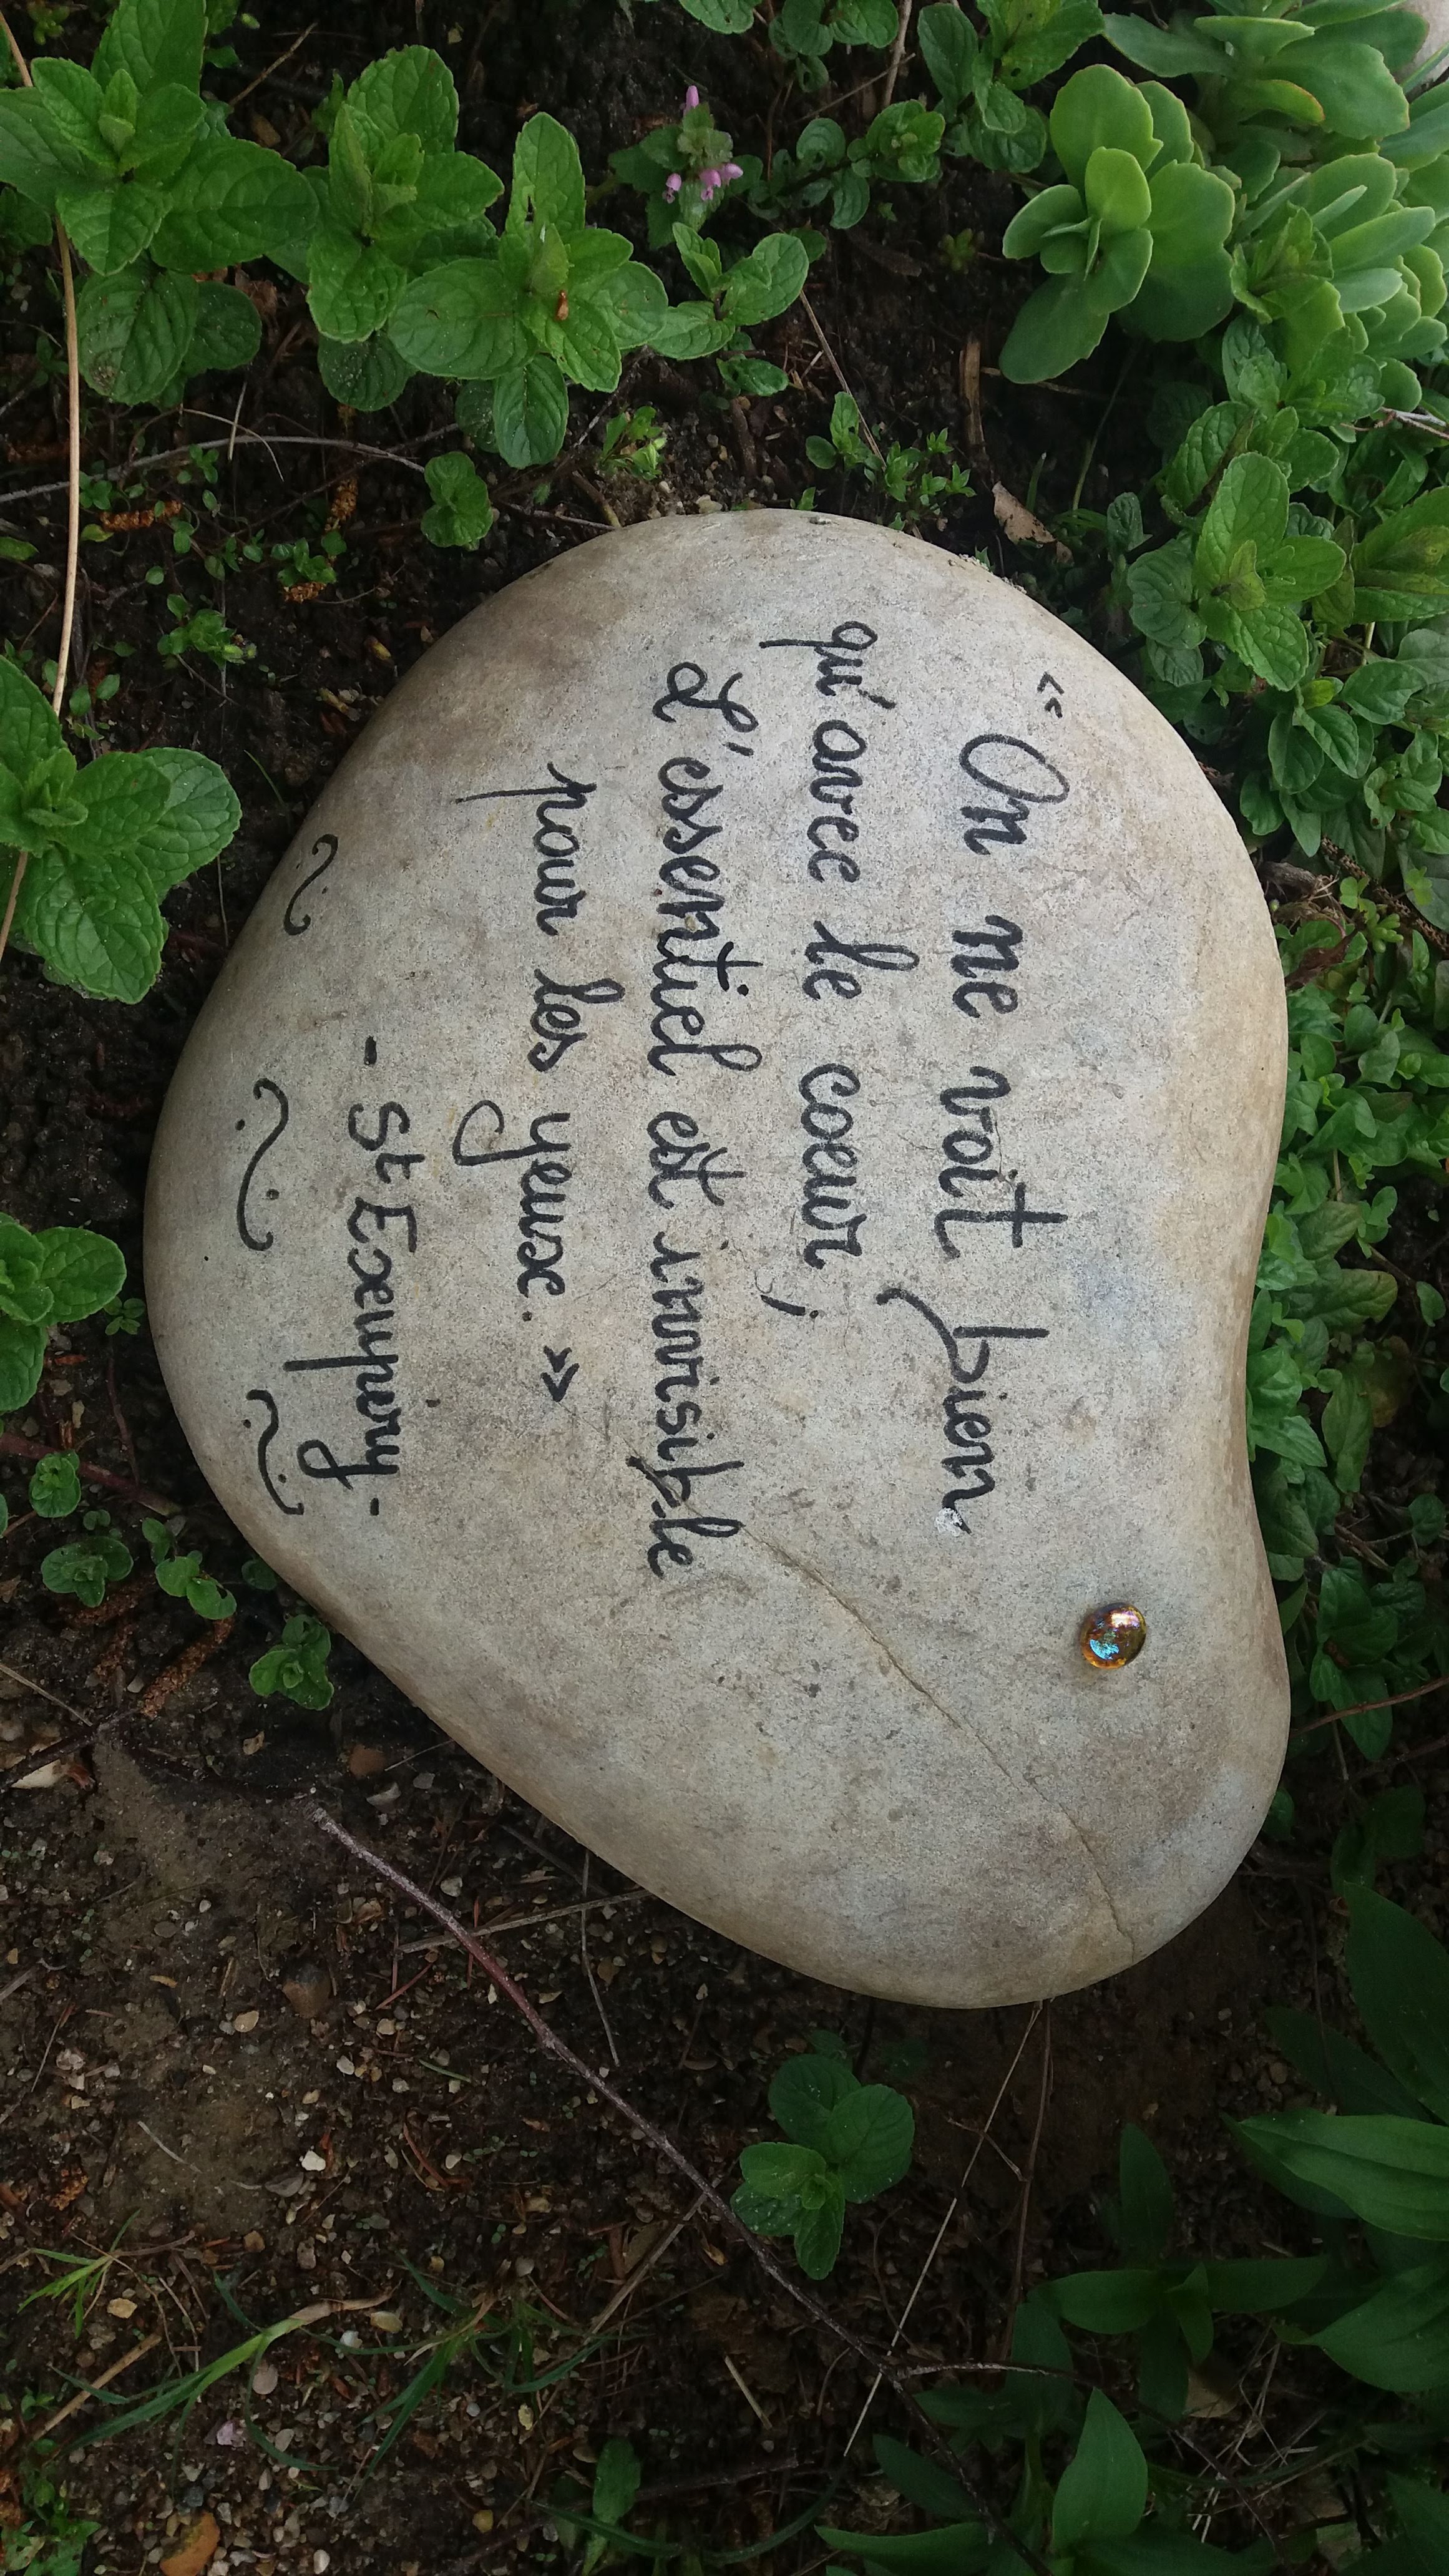 « On ne voit bien
qu'avec le coeur,
L'essentiel est invisible
pour les yeux. »
- St Exeupery -